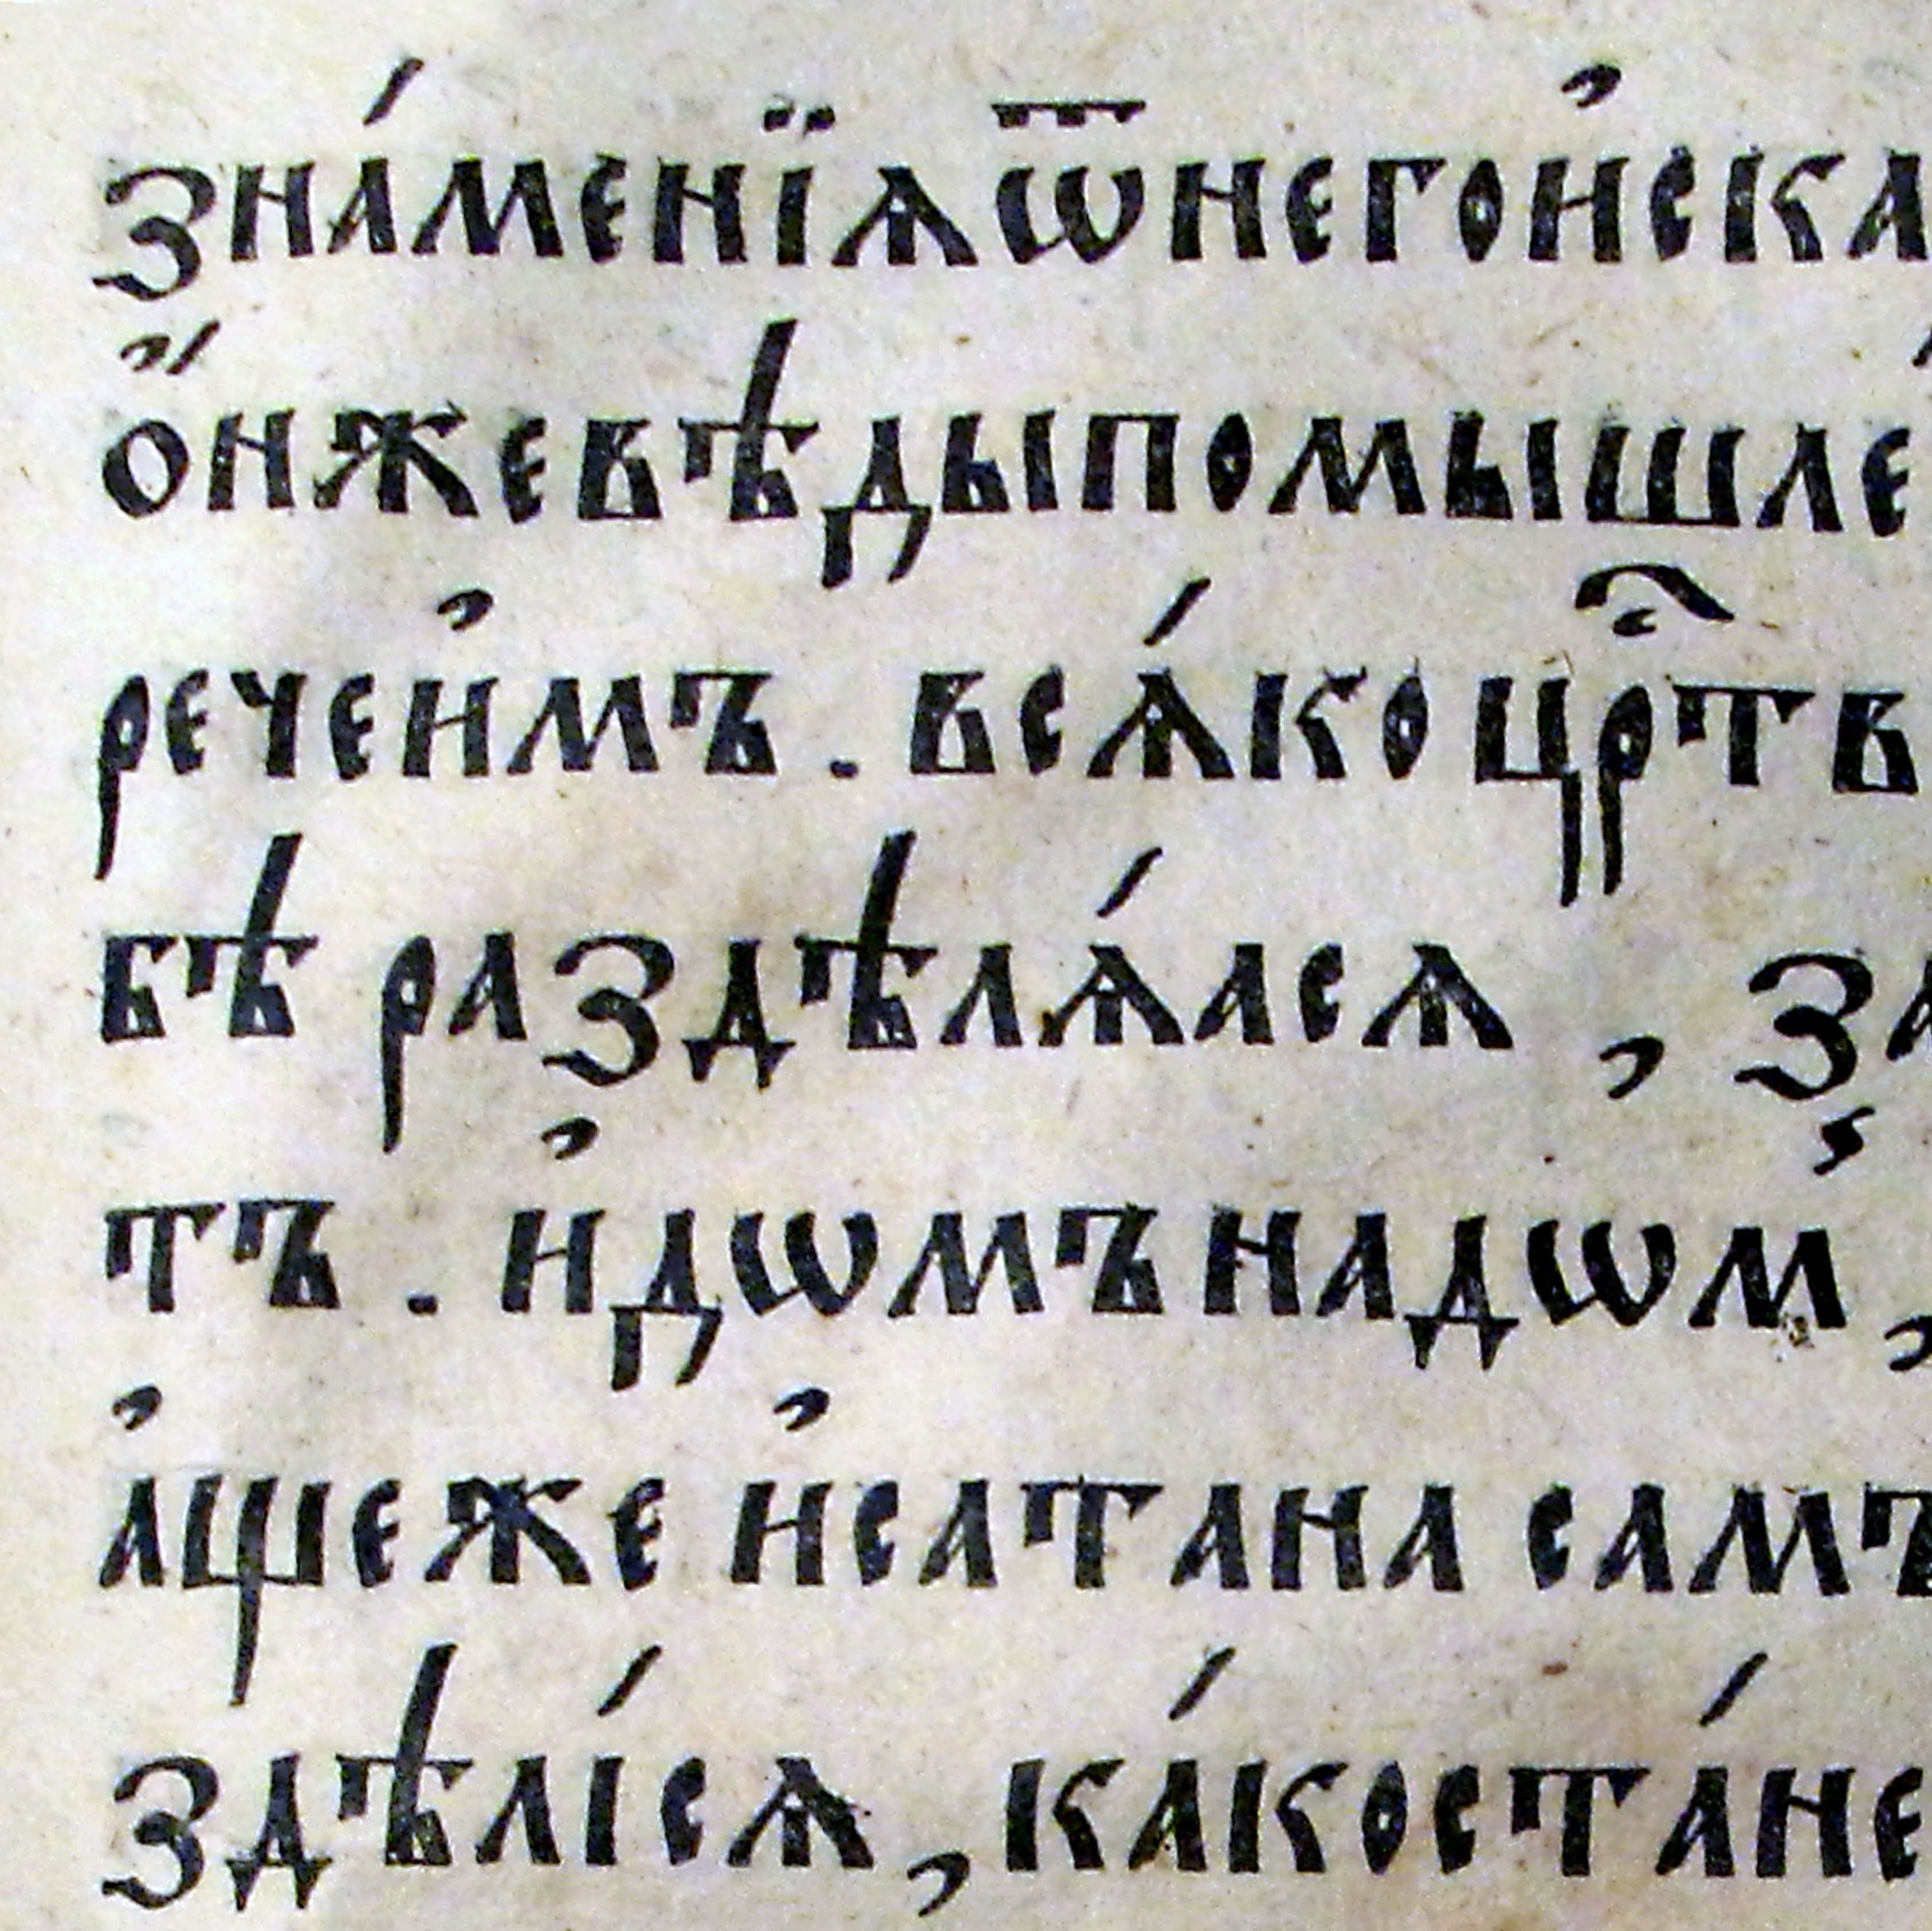 зна́менїѧ ѿнегои҆ска
о҆́нжевѣдыпомышле
речеи҆мъ . всѧ́коцр҇тв
бѣ раздѣлѧ́ѧсѧ , за
тъ . и҆дѡмънадѡм ,
а҆щеже и҆сатана самъ
здѣлі́сѧ , ка́коста́не